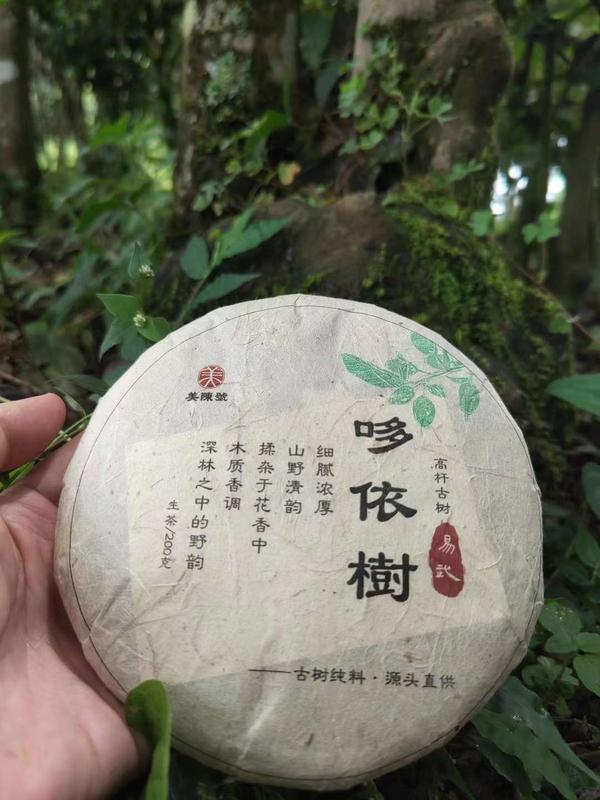 美
美陳號
高杆古树
易武
哆依樹
细腻浓厚
山野清韵
揉杂于花香中
木质香调
深林之中的野韵
生茶/200克
——古树纯料·源头直供